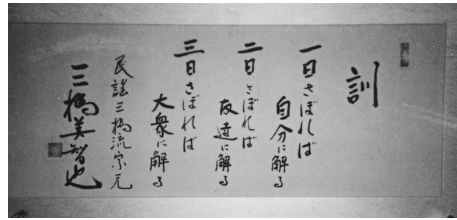 訓
一日さぼれば
自分に解る
二日さぼれば
友達に解る
三日さぼれば
大衆に解る
民謡三橋流宗元
三橋美智也